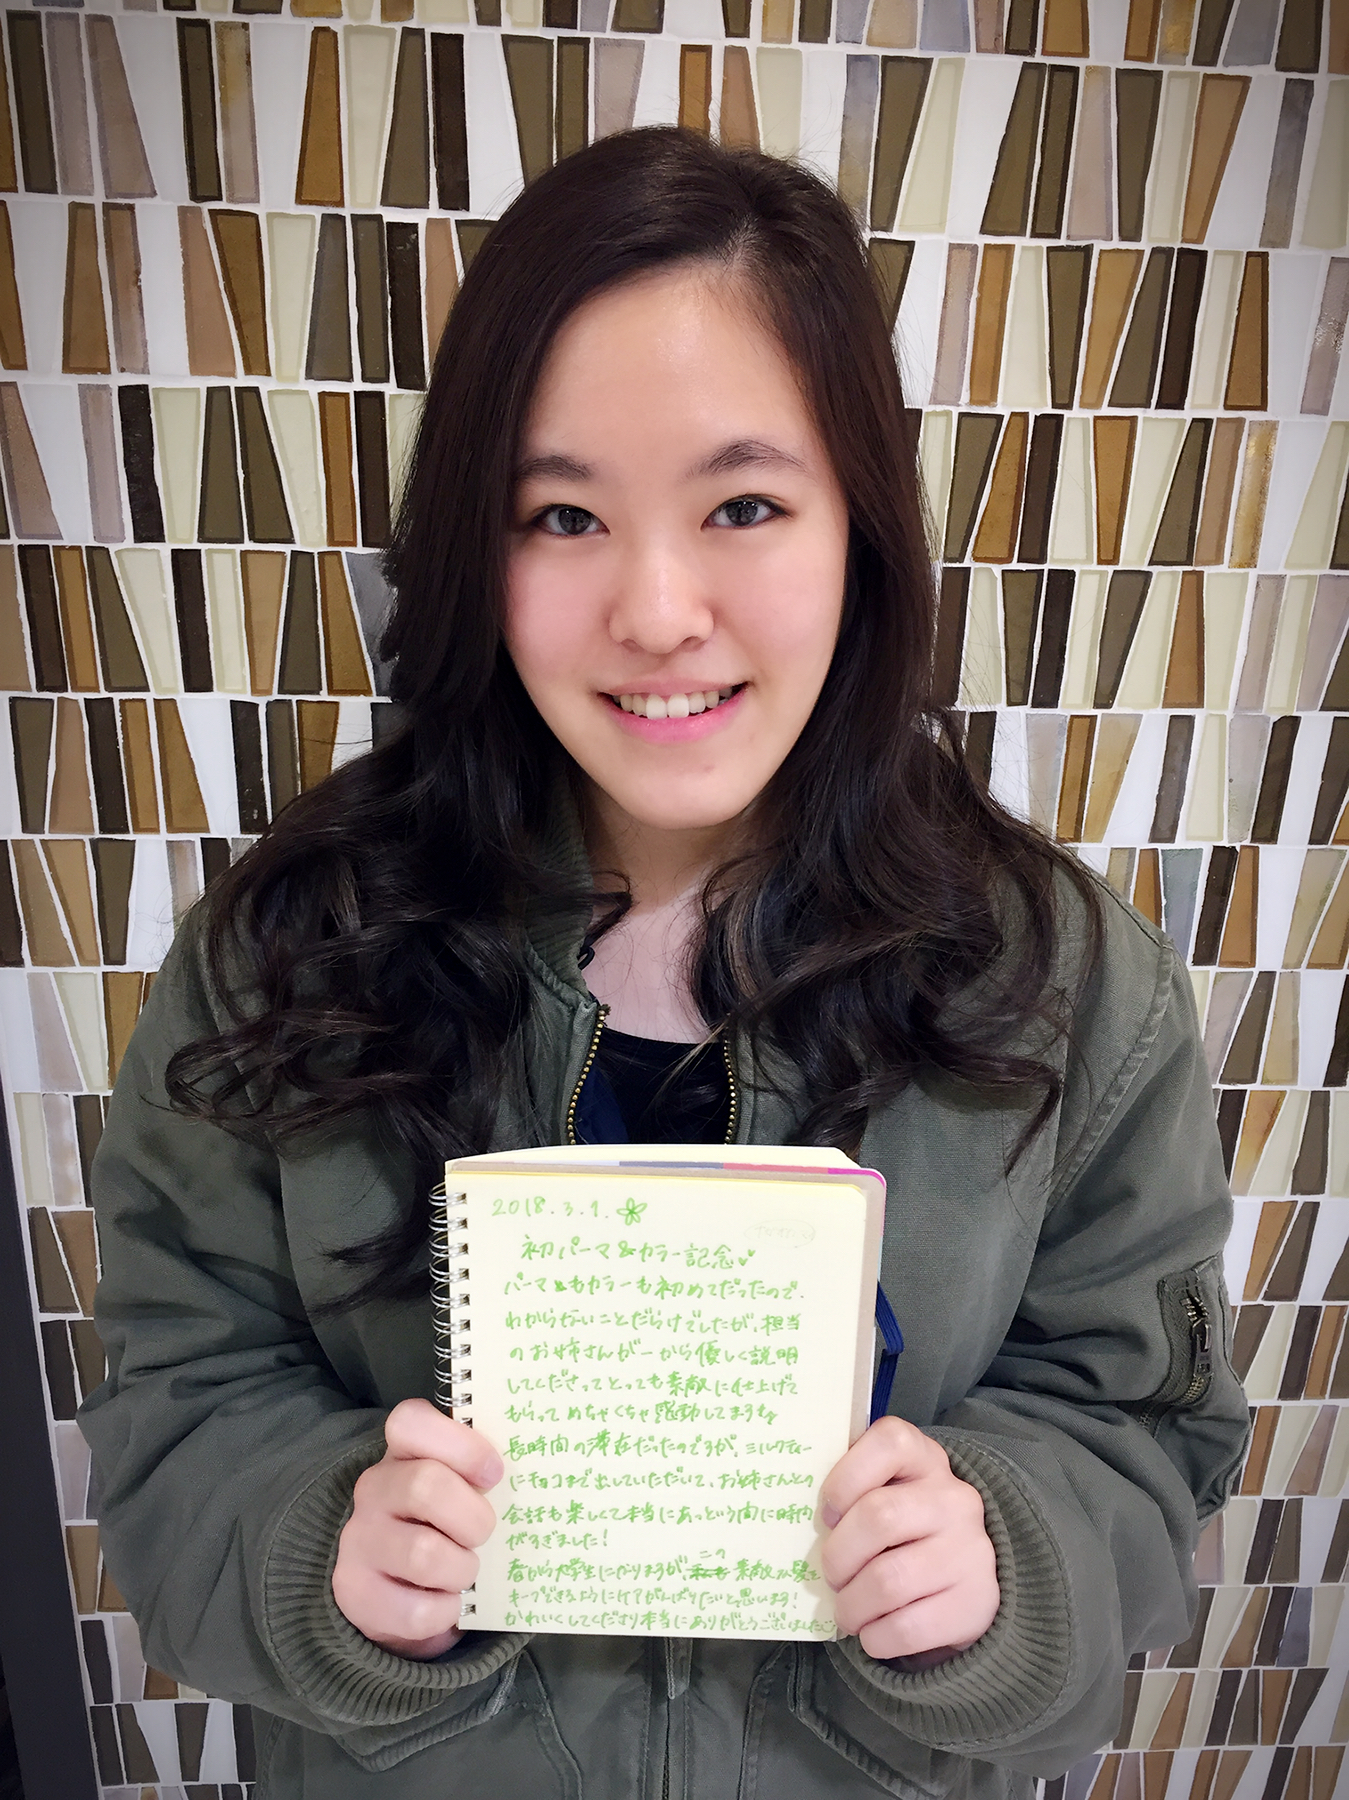 2018.3.1.
初パーマ&カラー記念
パーマもカラーも初めてだったので、
わからないことだらけでしたが、担当
のお姉さんが一から優しく説明
してくださってとっても素敵に仕上げて
もらってめちゃくちゃ感動してます
長時間の滞在だったのですが、ミルクティー
にチョコまで出していただいて、お姉さんとの
会話も楽しくて本当にあっという間に時間
がすぎました!
春から大学生になりますが、この素敵な髪を
キープできるようにケアがんばりたいと思います!
かわいくしてくださり本当にありがとうございました